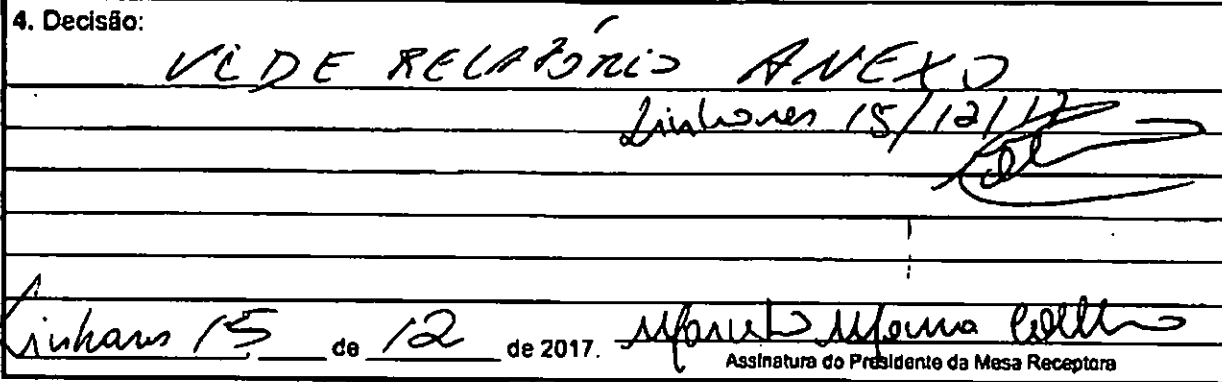 4. Decisão:
VIDE RELATÓRIO ANEXO
Linhares 15/12/17
Linhares 15 de 12 de 2017. Marcelo Coelho
Assinatura do Presidente da Mesa Receptora